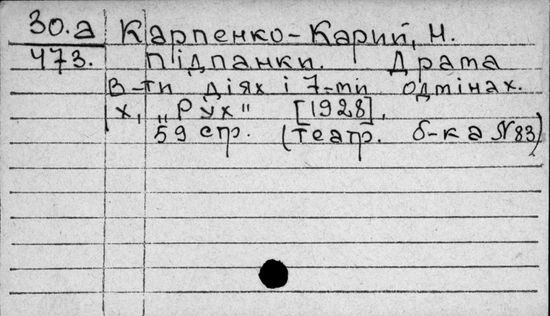 30.а Карпенко-Карий, И.
473. Підпанки. Драта
В-ти діях і 7-ми одмінах.
Х, „Рух" [1928],
59 стр. (театр. б-ка №83)